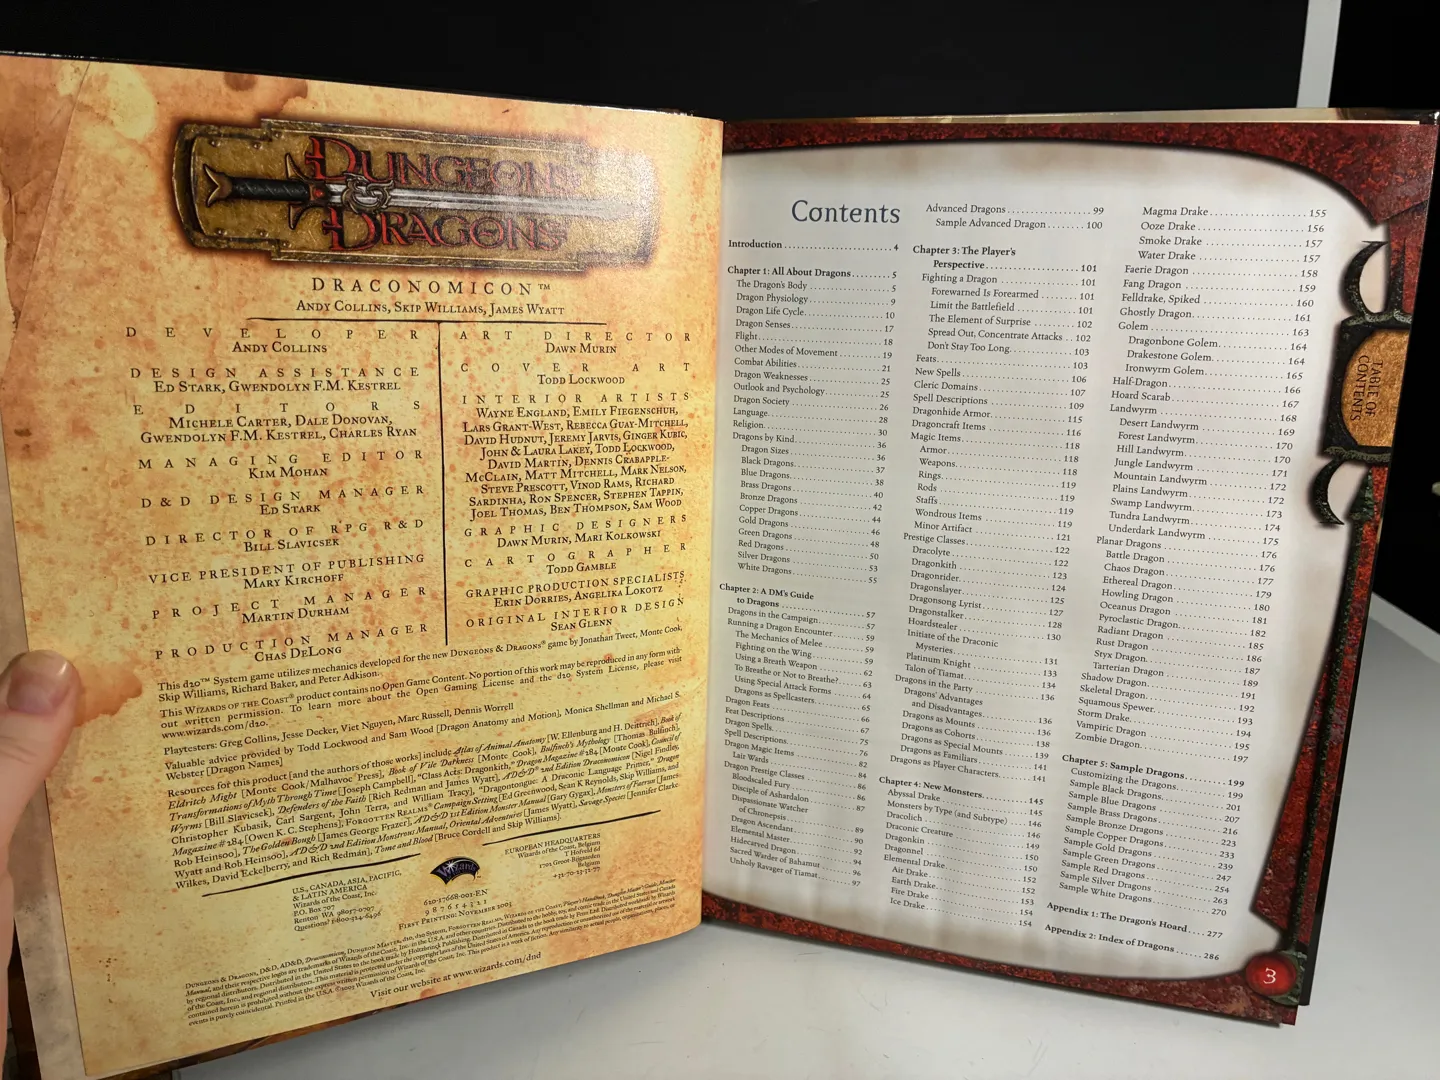 DUNGEONS
&
DRAGONS
DRACONOMICON™
ANDY COLLINS, SKIP WILLIAMS, JAMES WYATT
DEVELOPER
ANDY COLLINS
DESIGN ASSISTANCE
ED STARK, GWENDOLYN F.M. KESTREL
EDITORS
MICHELE CARTER, DALE DONOVAN,
GWENDOLYN F.M. KESTREL, CHARLES RYAN
MANAGING EDITOR
KIM MOHAN
D&D DESIGN MANAGER
ED STARK
DIRECTOR OF RPG R&D
BILL SLAVICSEK
VICE PRESIDENT OF PUBLISHING
MARY KIRCHOFF
PROJECT MANAGER
MARTIN DURHAM
PRODUCTION MANAGER
CHAS DELONG
ART DIRECTOR
DAWN MURIN
COVER ART
TODD LOCKWOOD
INTERIOR ARTISTS
WAYNE ENGLAND, EMILY FIEGENSCHUH,
LARS GRANT-WEST, REBECCA GUAY-MITCHELL,
DAVID HUDNUT, JEREMY JARVIS, GINGER KUBIC,
JOHN & LAURA LAKEY, TODD LOCKWOOD,
DAVID MARTIN, DENNIS CRABAPPLE-
MCCLAIN, MATT MITCHELL, MARK NELSON,
STEVE PRESCOTT, VINOD RAMS, RICHARD
SARDINHA, RON SPENCER, STEPHEN TAPPIN,
JOEL THOMAS, BEN THOMPSON, SAM WOOD
GRAPHIC DESIGNERS
DAWN MURIN, MARI KOLKOWSKI
CARTOGRAPHER
TODD GAMBLE
GRAPHIC PRODUCTION SPECIALISTS
ERIN DORRIES, ANGELIKA LOKOTZ
ORIGINAL INTERIOR DESIGN
SEAN GLENN
This d20™ System game utilizes mechanics developed for the new DUNGEONS & DRAGONS® game by Jonathan Tweet, Monte Cook,
Skip Williams, Richard Baker, and Peter Adkison.
This WIZARDS OF THE COAST® product contains no Open Game Content. No portion of this work may be reproduced in any form with-
out written permission. To learn more about the Open Gaming License and the d20 System License, please visit
www.wizards.com/d20.
Playtesters: Greg Collins, Jesse Decker, Viet Nguyen, Marc Russell, Dennis Worrell
Valuable advice provided by Todd Lockwood and Sam Wood [Dragon Anatomy and Motion], Monica Shellman and Michael S.
Webster [Dragon Names]
Resources for this product [and the authors of those works] include Atlas of Animal Anatomy [W. Ellenburg and H. Deittrich], Book of
Eldritch Might [Monte Cook/Malhavoc Press], Book of Vile Darkness [Monte Cook], Bulfinch's Mythology [Thomas Bulfinch],
Transformations of Myth Through Time [Joseph Campbell], "Class Acts: Dragonkith," Dragon Magazine #284 [Monte Cook], Council of
Wyrms [Bill Slavicsek], Defenders of the Faith [Rich Redman and James Wyatt], AD&D 2nd Edition Draconomicon [Nigel Findley,
Christopher Kubasik, Carl Sargent, John Terra, and William Tracy], "Dragontongue: A Draconic Language Primer," Dragon
Magazine #284 [Owen K. C. Stephens], FORGOTTEN REALMS® Campaign Setting [Ed Greenwood, Sean K Reynolds, Skip Williams, and
Rob Heinsoo], The Golden Bough [James George Frazer], AD&D 1st Edition Monster Manual [Gary Gygax], Monsters of Faerun [James
Wyatt and Rob Heinsoo], AD&D 2nd Edition Monstrous Manual, Oriental Adventures [James Wyatt], Savage Species [Jennifer Clarke
Wilkes, David Eckelberry, and Rich Redman], Tome and Blood [Bruce Cordell and Skip Williams].
U.S., CANADA, ASIA, PACIFIC,
& LATIN AMERICA
Wizards of the Coast, Inc.
P.O. Box 707
Renton WA 98057-0707
Questions? 1-800-324-6496
Wizards
620-17668-001-EN
9 8 7 6 5 4 3 2 1
FIRST PRINTING: NOVEMBER 2003
EUROPEAN HEADQUARTERS
Wizards of the Coast, Belgium
T Hofveld 6d
1702 Groot-Bijgaarden
Belgium
+32-70-23-32-77
Visit our website at www.wizards.com/dnd
Contents
Introduction 4
Chapter 1: All About Dragons 5
The Dragon's Body 5
Dragon Physiology 9
Dragon Life Cycle 10
Dragon Senses 17
Flight 18
Other Modes of Movement 19
Combat Abilities 21
Dragon Weaknesses 25
Outlook and Psychology 25
Dragon Society 26
Language 28
Religion 30
Dragons by Kind 36
Dragon Sizes 36
Black Dragons 37
Blue Dragons 38
Brass Dragons 40
Bronze Dragons 42
Copper Dragons 44
Gold Dragons 46
Green Dragons 48
Red Dragons 50
Silver Dragons 53
White Dragons 55
Chapter 2: A DM's Guide
to Dragons 57
Dragons in the Campaign 57
Running a Dragon Encounter 59
The Mechanics of Melee 59
Fighting on the Wing 59
Using a Breath Weapon 62
To Breathe or Not to Breathe? 63
Using Special Attack Forms 64
Dragons as Spellcasters 65
Dragon Feats 66
Feat Descriptions 67
Dragon Spells 75
Spell Descriptions 76
Dragon Magic Items 82
Lair Wards 84
Dragon Prestige Classes 86
Bloodscaled Fury 86
Disciple of Ashardalon 87
Dispassionate Watcher
of Chronepsis 89
Dragon Ascendant 90
Elemental Master 92
Hidecarved Dragon 94
Sacred Warder of Bahamut 96
Unholy Ravager of Tiamat 97
Advanced Dragons 99
Sample Advanced Dragon 100
Chapter 3: The Player's
Perspective 101
Fighting a Dragon 101
Forewarned Is Forearmed 101
Limit the Battlefield 101
The Element of Surprise 102
Spread Out, Concentrate Attacks 102
Don't Stay Too Long 103
Feats 103
New Spells 106
Cleric Domains 107
Spell Descriptions 109
Dragonhide Armor 115
Dragoncraft Items 116
Magic Items 118
Armor 118
Weapons 118
Rings 119
Rods 119
Staffs 119
Wondrous Items 119
Minor Artifact 121
Prestige Classes 122
Dracolyte 122
Dragonkith 123
Dragonrider 124
Dragonslayer 125
Dragonsong Lyrist 127
Dragonstalker 128
Hoardstealer 130
Initiate of the Draconic
Mysteries 131
Platinum Knight 133
Talon of Tiamat 134
Dragons in the Party 136
Dragons' Advantages
and Disadvantages 136
Dragons as Mounts 136
Dragons as Cohorts 138
Dragons as Special Mounts 139
Dragons as Familiars 141
Dragons as Player Characters 141
Chapter 4: New Monsters 145
Abyssal Drake 145
Monsters by Type (and Subtype) 146
Dracolich 146
Draconic Creature 149
Dragonkin 150
Dragonnel 150
Elemental Drake 151
Air Drake 152
Earth Drake 153
Fire Drake 154
Ice Drake 154
Magma Drake 155
Ooze Drake 156
Smoke Drake 157
Water Drake 157
Faerie Dragon 158
Fang Dragon 159
Felldrake, Spiked 160
Ghostly Dragon 161
Golem 163
Dragonbone Golem 164
Drakestone Golem 164
Ironwyrm Golem 165
Half-Dragon 166
Hoard Scarab 167
Landwyrm 168
Desert Landwyrm 169
Forest Landwyrm 170
Hill Landwyrm 170
Jungle Landwyrm 171
Mountain Landwyrm 172
Plains Landwyrm 172
Swamp Landwyrm 173
Tundra Landwyrm 174
Underdark Landwyrm 175
Planar Dragons 176
Battle Dragon 176
Chaos Dragon 177
Ethereal Dragon 179
Howling Dragon 180
Oceanus Dragon 181
Pyroclastic Dragon 182
Radiant Dragon 185
Rust Dragon 186
Styx Dragon 187
Tarterian Dragon 189
Shadow Dragon 191
Skeletal Dragon 192
Squamous Spewer 193
Storm Drake 194
Vampiric Dragon 195
Zombie Dragon 197
Chapter 5: Sample Dragons 199
Customizing the Dragons 199
Sample Black Dragons 201
Sample Blue Dragons 207
Sample Brass Dragons 216
Sample Bronze Dragons 223
Sample Copper Dragons 233
Sample Gold Dragons 239
Sample Green Dragons 247
Sample Red Dragons 254
Sample Silver Dragons 263
Sample White Dragons 270
Appendix 1: The Dragon's Hoard 277
Appendix 2: Index of Dragons 286
TABLE OF
CONTENTS
3